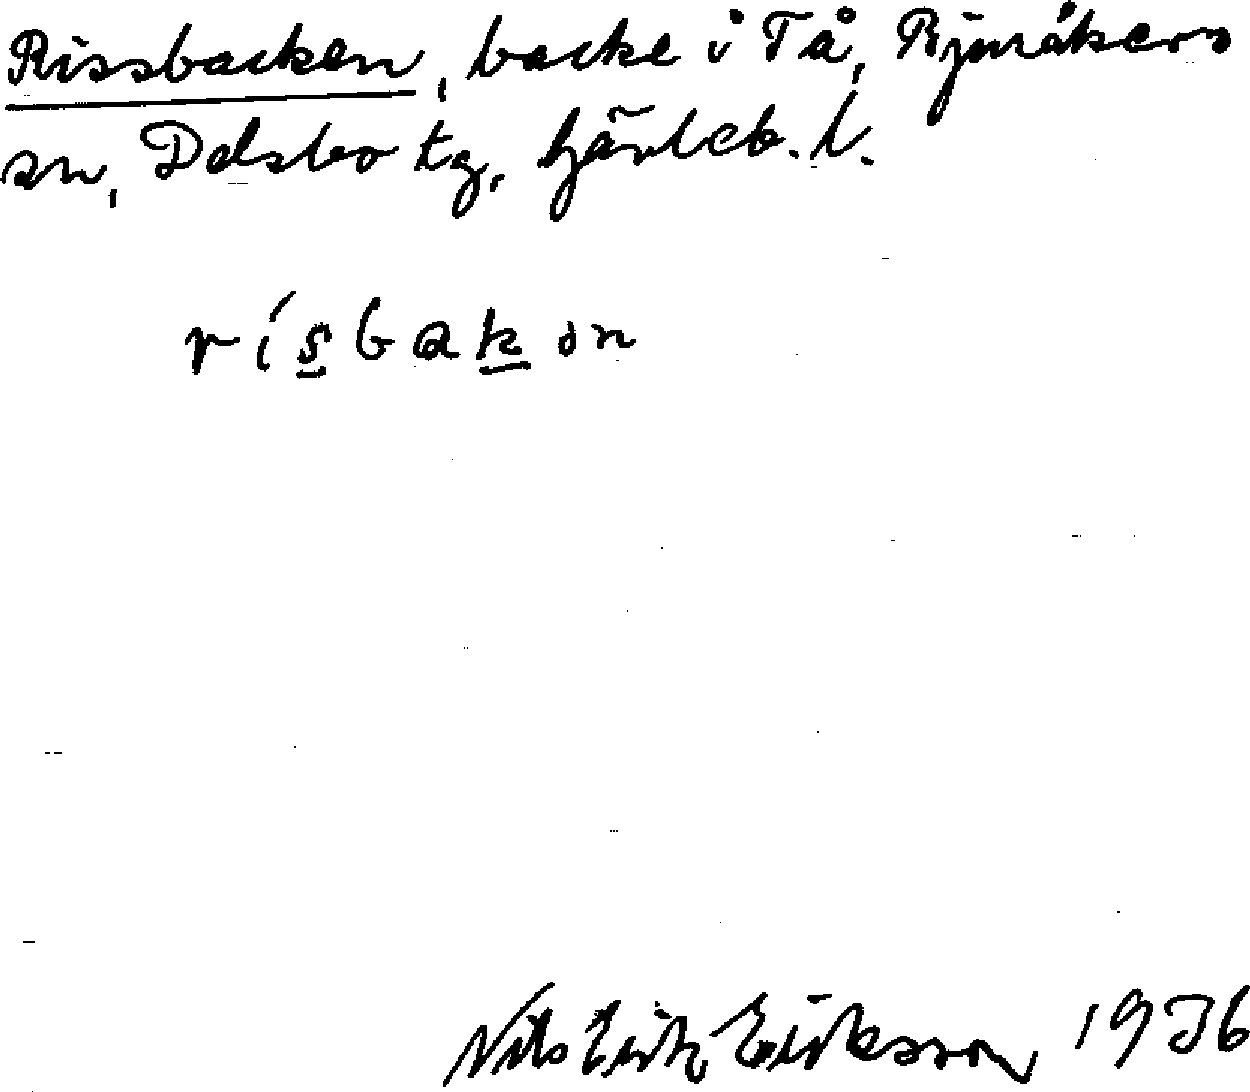 Rissbacken, backe i Tå, Bjuråkers
sn, Delsbo tg, Gävleb. l.
rísbakən
Nils Erik Eriksson 1936